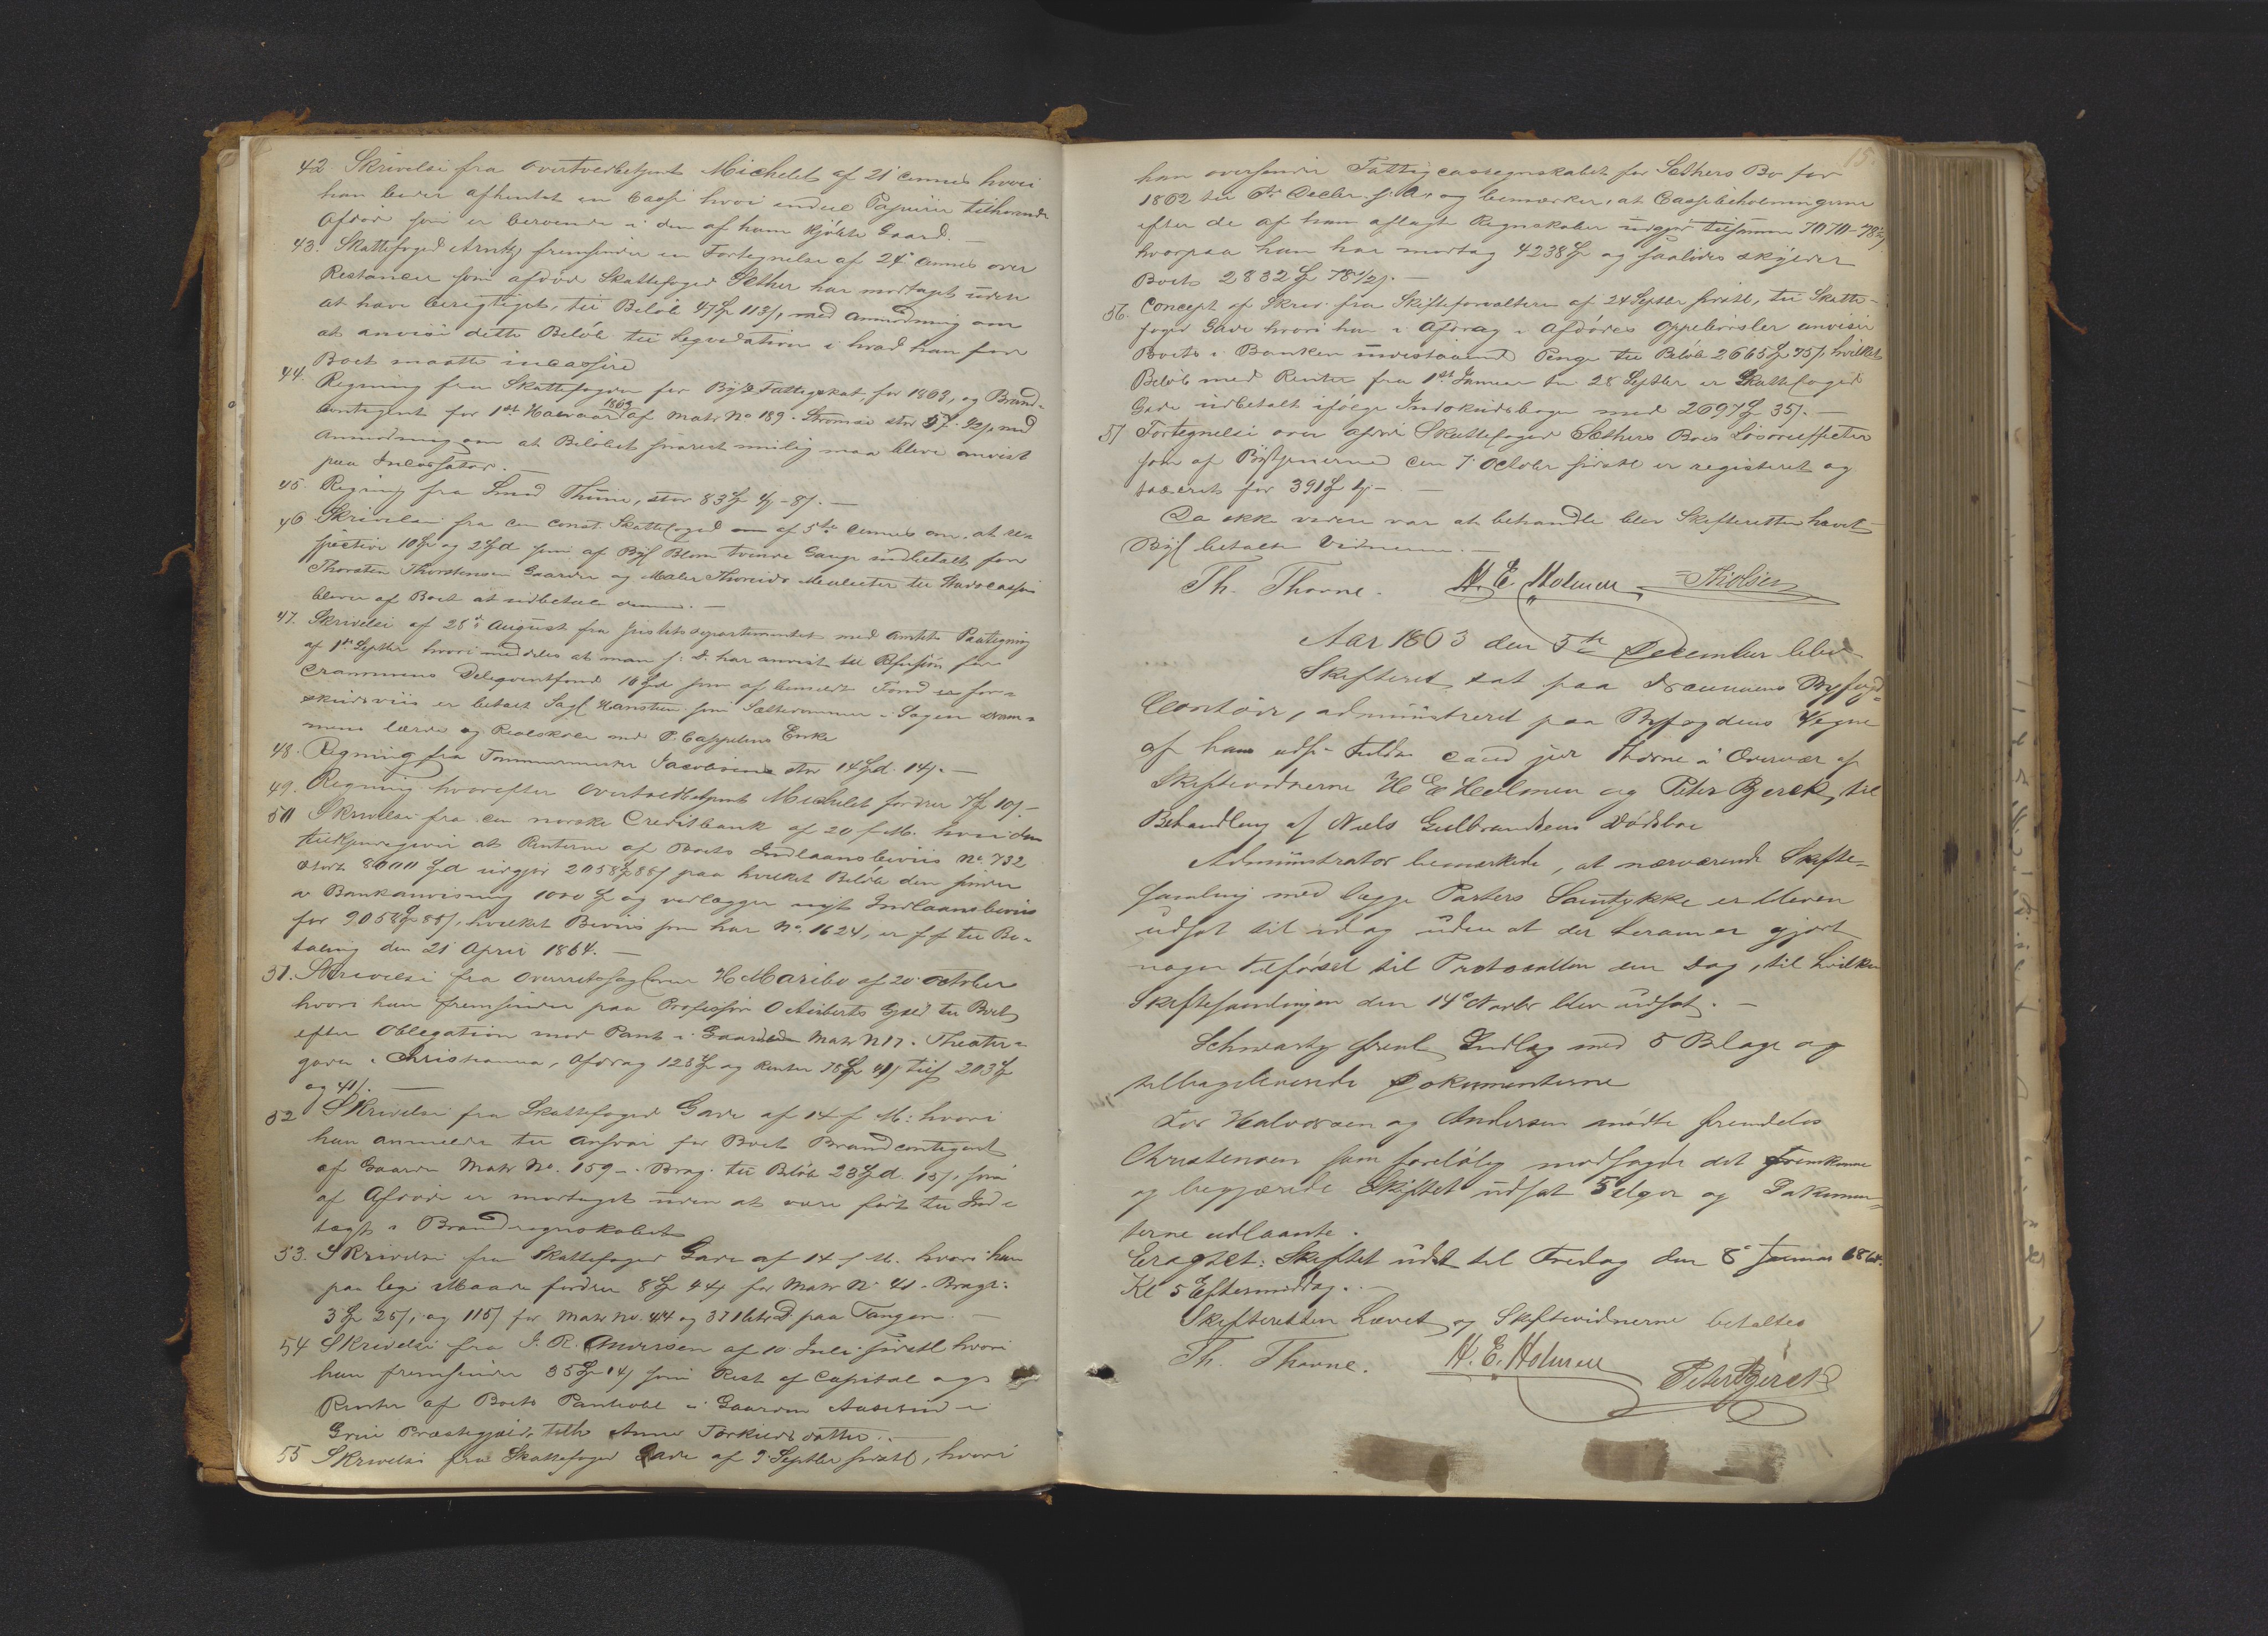 42 Skrivelse fra Overtoldbetjent Michelet af 21 ds hvori
han beder afhentet en Casse hvori endeel Papirer tilhørende
Afdøde som er beroende i den af ham kjøbte Gaard.
43. Skattefoged Arntz fremsender en Fortegnelse af 24 ds over
Restancer som afdøde Skattefoged Sæther har modtaget uden
at have beregtiget, til Beløb 47 113/, med Anmodning om
at anvise dette Beløb til Leqvidation i hvad han for
Boet maatte incassere
44. Regning fra Skattefogden for By& Fattigskat, for 1863, og Brand-
contigent for 1st Halvaar 1863 af Matr No 189. Strømsø stor med
Anmodning om at Beløbet snarest mulig maa blive anvist
paa Incassator.
45. Regning fra Smed Thime, stor 83 4 - 8/. —
46 Skrivelse fra den const. Skattefoged om af 5te ds om, at re-
spective 10 og 2 som af Byf Blom tvende Gange indbetalt for
Thorsten Thorstensen Gaarder og Maler til Stadscassen
bliver af Boet at udbetale denne. —
47. Skrivelse af 28de August fra Justitsdepartementet med Amtets Paategning
af 1st Septbr hvori meddeles at man har anvist til Refusion for
Drammens Deleqventfond 16 som af bemeldte Fond er for-
skudsviis er betalt Sagf Hansteen som Sættedommer i Sagen Dram-
mens lærde og Realskole mod P. Cappelens Enke
48. Regning fra Tømmermester Jacobsen stor 14 14/. —
49. Regning hvorefter Overtoldbetjent Michelet fordrer 7 10/ —
50 Skrivelse fra den norske Creditbank af 20 f. M. hvori den
tilkjendegiver at Renterne af Boets Indlaansbeviis No 732
stort 8000 udgjør 2058 88/ paa hvilket Beløb den sender
a Bankanvisning 1000 og vedlægger nyt Indlaansbeviis
for 9058 88/, hvilket Beviis som har No. 1624, er f. f. til Be-
taling den 21 April 1864. —
51. Skrivelse fra Overretssagfører H Maribo af 20 October
hvori han fremsender paa Professor O Auberts Gjeld til Boet
efter Obligation mod Pant i Gaarden Matr N 17. Theater-
gaden i Christiania, Afdrag 128 og Renter 75 41/ tils 203
og 41/. —
52 Skrivelse fra Skattefoged Gade af 14 f M: hvori
han anmelder til Ansvar for Boet Brandcontigent
af Gaarden Matr No. 159 - Brag. til Beløb 23 15/, som
af Afdøde er modtaget uden at være ført til Ind-
tægt i Brandregnskabet
53. Skrivelse fra Skattefoged Gade af 14 f M. hvori han
paa lige Maade fordrer 8 44/ for Matr No 41 - Brage:
3 25/, og 115/ for Matr No. 44 og 371 litr D paa Tangen. —
54 Skrivelse fra J. R. Andersen af 10 Juli sidstl hvori
han fremsender 35 14/ som Rest af Capital og
Renter af Boets Panteobl i Gaarden i
Grue Præstegjeld, tilh Anne Torkildsdatter. —
55 Skrivelse fra Skattefoged Gade af 9 Septbr sidstl, hvori
15.
han oversender Fattigcasseregnskabet for Sæthers Bo for
1862 til 6te Decbr s. A. og bemærker, at Cassebeholdningerne
efter de af ham aflagte Regnskaber udgjør tilsammen 7070 - 78½/
hvorpaa han har modtag 4238 og saaledes skylder
Boets 2832 78½/. —
56. Concept af Skriv. fra Skifteforvalteren af 24 Septbr sidstl, til Skatte-
foged Gade hvori han i Afdrag i Afdødes Oppebørsler anviser
Boets i Banken indestaaende Penge til Beløb 2665 75/. hvilket
Beløb med Renter fra 1st Januar til 28 Septbr er Skattefoged
Gade udbetalt ifølge Indskudsbogen med 2697 35/. —
57 Fortegnelse over afdøde Skattefoged Sæthers Boes Løsøreeffecter
som af Bytjenerne den 7 October sidstl er registeret og
taxeret for 391 1/ — —
Da ikke videre var at behandle blev Skifteretten hævet
Byf betalte Vidnerne. —
Th. Thorne. H. E. Holmen
Aar 1863 den 5te December blev
Skifteret sat paa Drammens Byfogd-
Contoir, administreret paa Byfogdens Vegne
af hans edsv Fuldm cand jur Thorne i Overvær af
Skiftevidnerne H E Holmen og Peter Bjerck, til
Behandling af Niels Gulbrandsens Dødsboe
Administrator bemærkede, at nærværende Skifte-
samling med begge Parters Samtykke er bleven
udsat til idag uden at der herom er gjort
nogen Tilførsel til Protocollen den Dag, til hvilken
Skiftesamlingen den 14de Novbr blev udsat. —
Schwartz freml Indlæg med 5 Bilage og
tilbageleverede Dokumenterne
For Halvorsen og Andersen mødte fremdeles
Christensen som foreløbig modsagde det Fremkomne
og begjærede Skiftet udsat 5 Uger og Dokumen-
terne udlaante.
Eragtet: Skiftet udst til Fredag den 8de Januar 1864.
Kl 5 Eftermiddag. —
Skifteretten hævet og Skiftevidnerne betaltes
Th. Thorne. H. E. Holmen Peter Bjerck